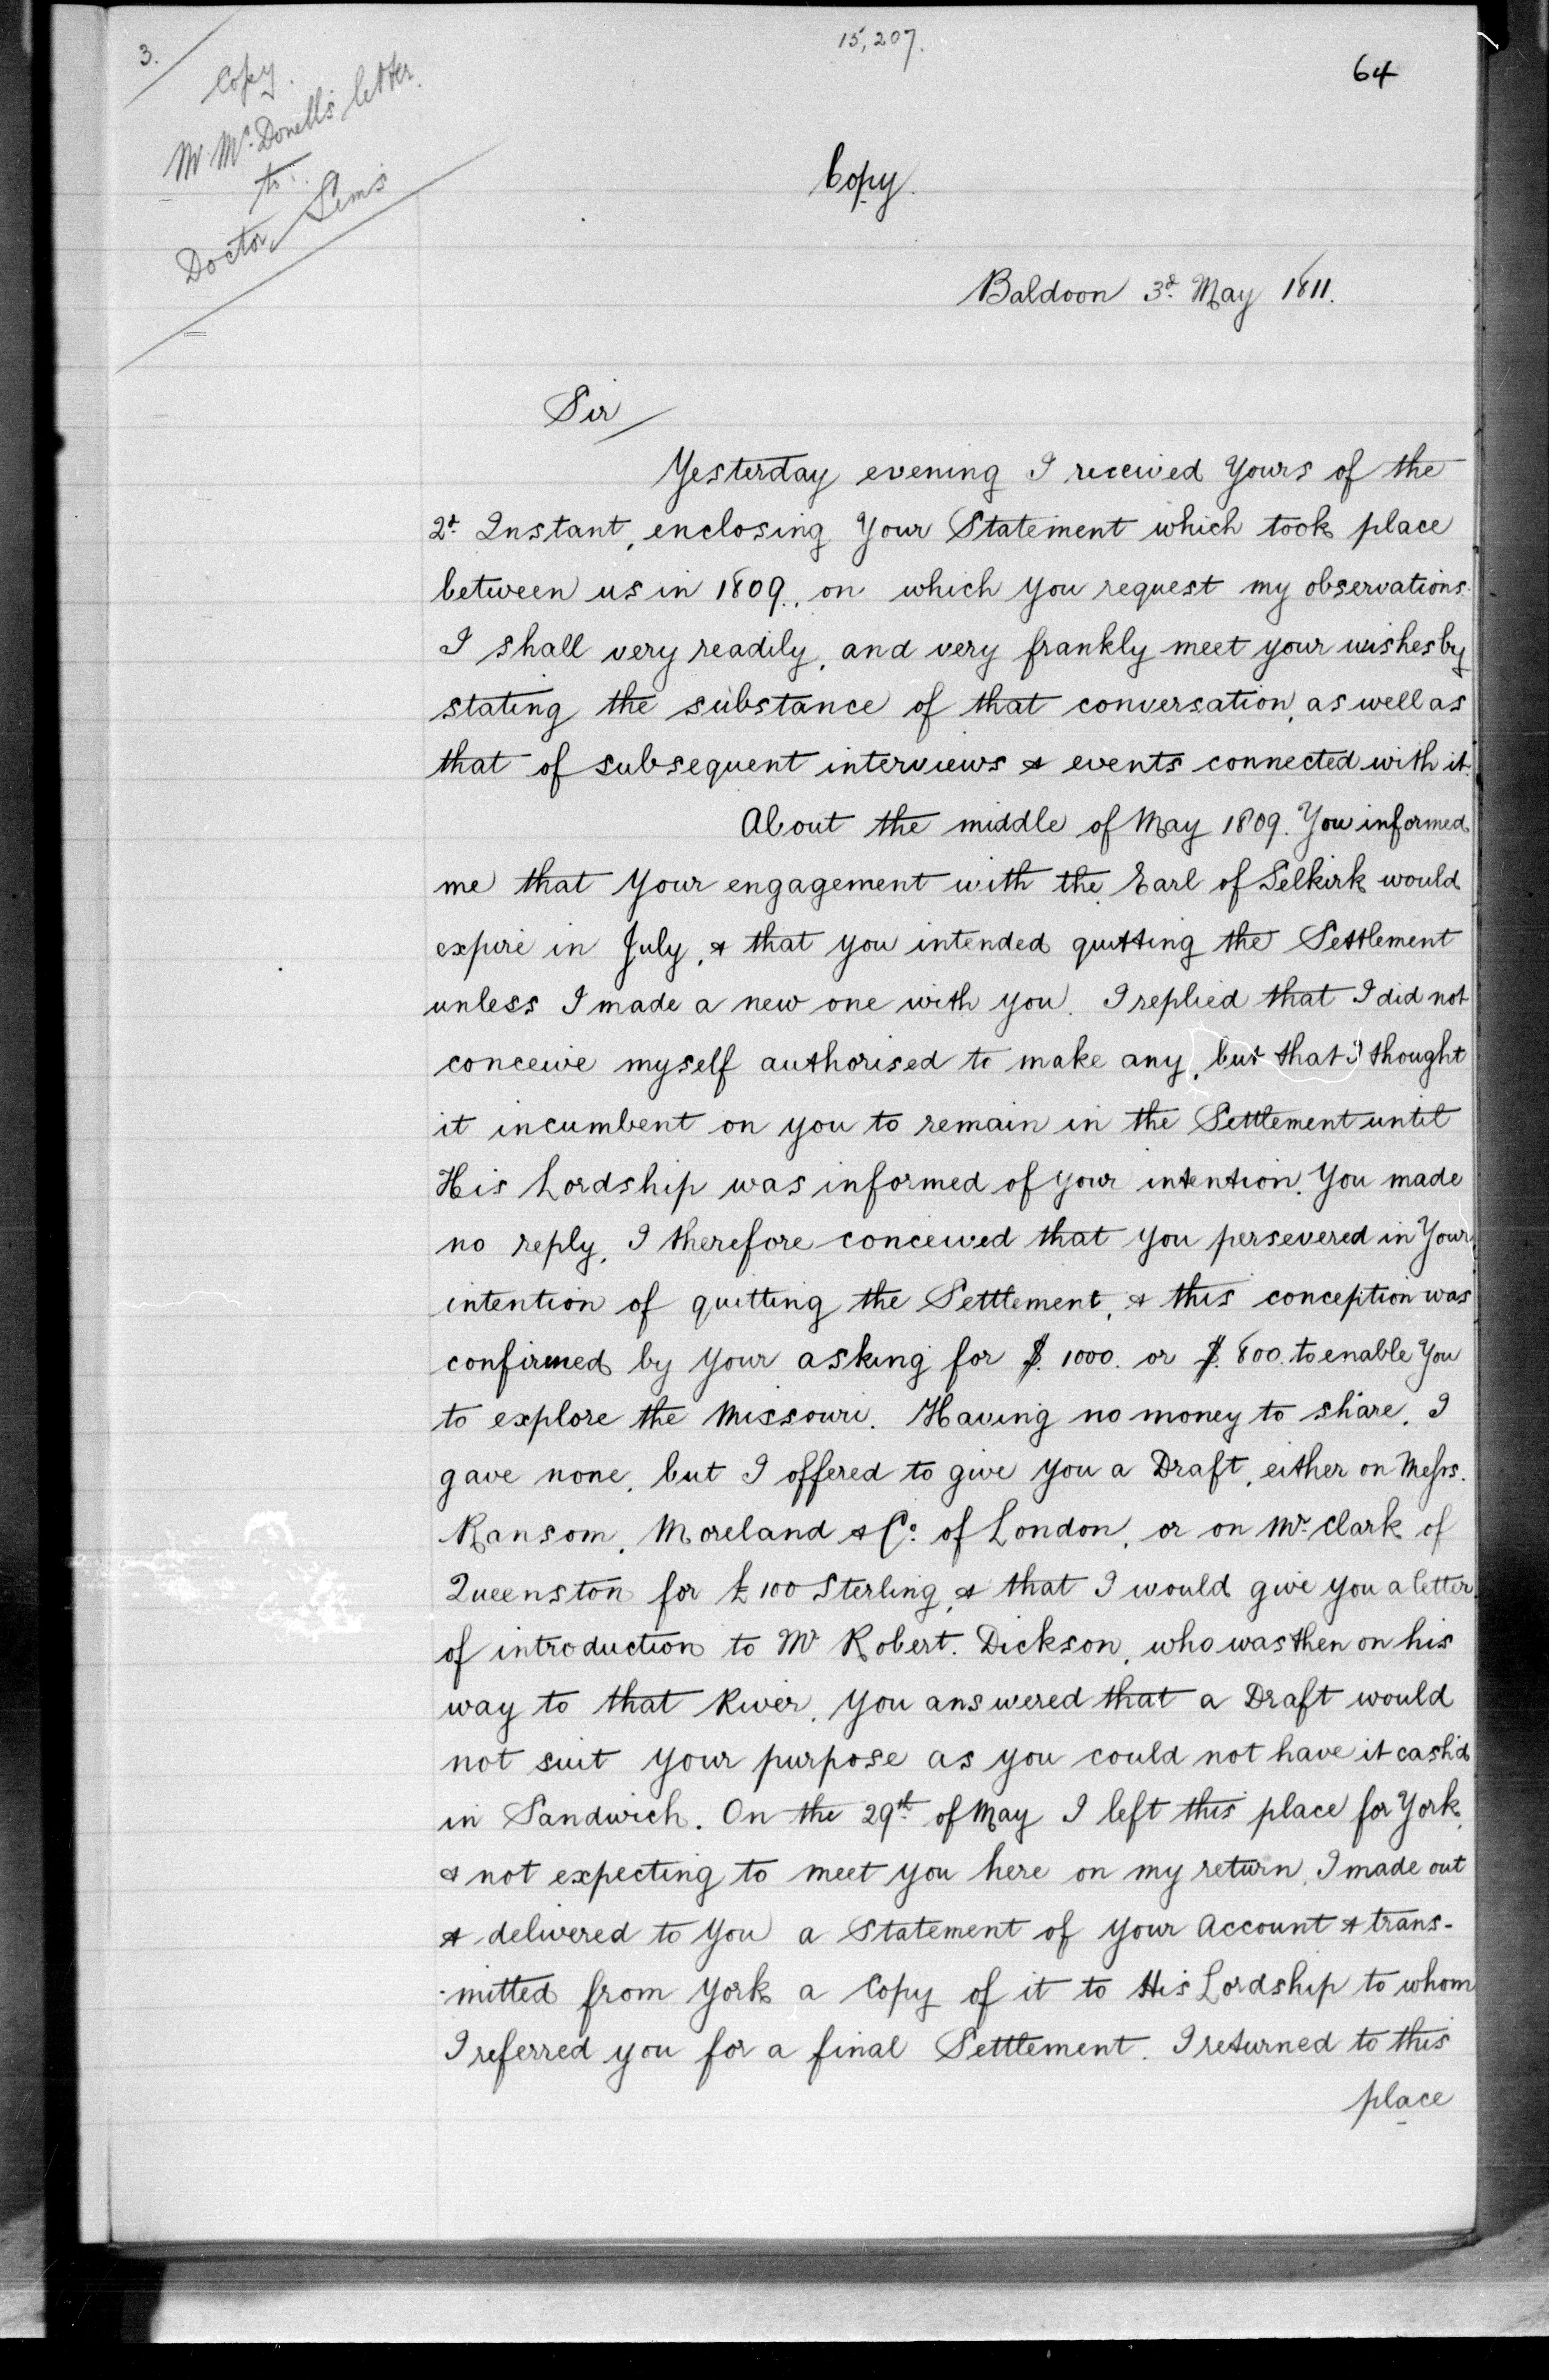 15,207.
64
3.
Copy.
Mr McDonell's letter.
to
Doctor Sims
Copy.
Baldoon 3d. May 1811.
Sir
Yesterday evening I received Yours of the
2d. Instant, enclosing Your Statement which took place
between us in 1809., on which you request my observations.
I shall very readily, and very frankly meet your wishes by
stating the substance of that conversation, as well as
that of subsequent interviews & events connected with it.
About the middle of May 1809. You informed
me that Your engagement with the Earl of Selkirk would
expire in July, & that you intended quitting the Settlement
unless I made a new one with you. I replied that I did not
conceive myself authorised to make any, but that I thought
it incumbent on you to remain in the Settlement until
His Lordship was informed of your intention. You made
no reply, I therefore conceived that you persevered in Your
intention of quitting the Settlement, & this conception was
confirmed by Your asking for $. 1000. or $. 800. to enable You
to explore the Missouri. Having no money to share, I
gave none, but I offered to give You a Draft, either on Messrs.
Ransom, Moreland & Co. of London, or on Mr. Clark of
Queenston for £100 Sterling, & that I would give you a letter
of introduction to Mr Robert. Dickson, who was then on his
way to that River. You answered that a Draft would
not suit Your purpose as you could not have it cash'd
in Sandwich. On the 29th. of May I left this place for York,
& not expecting to meet you here on my return, I made out
& delivered to You a Statement of Your Account & trans-
-mitted from York a Copy of it to His Lordship to whom
I referred you for a final Settlement. I returned to this
place